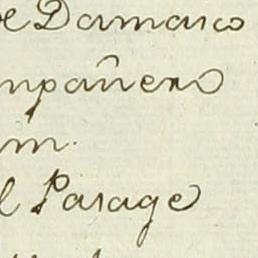 de Damasco
mpañero
m.
l Parage